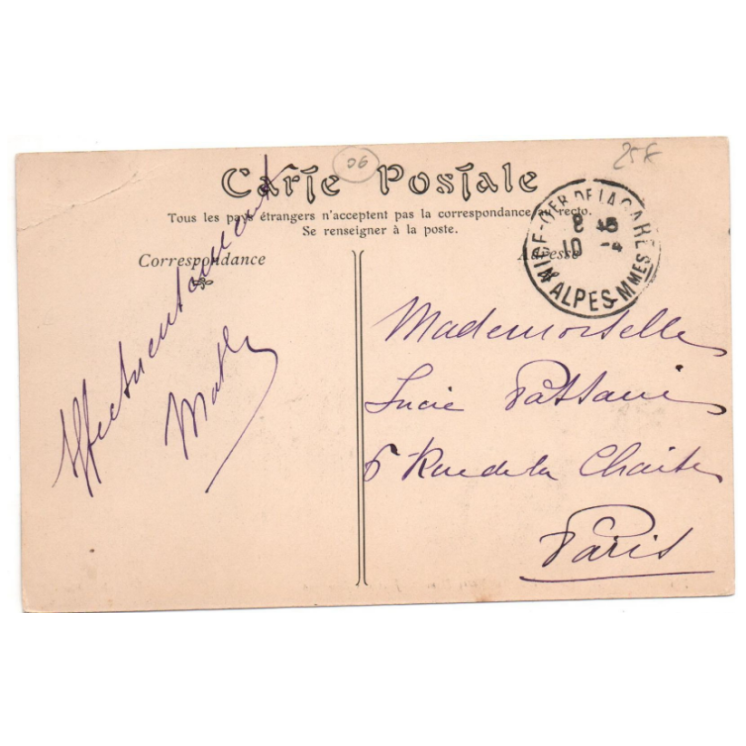 06
25 F
Carte Postale
Tous les pays étrangers n'acceptent pas la correspondance au recto.
Se renseigner à la poste.
Correspondance
Adresse
NICE-QIER DE LA GARE
8 45
10 -4
ALPES-MMES
Affectueusement
Mademoiselle
Lucie
6 Rue de la Chaise
Paris